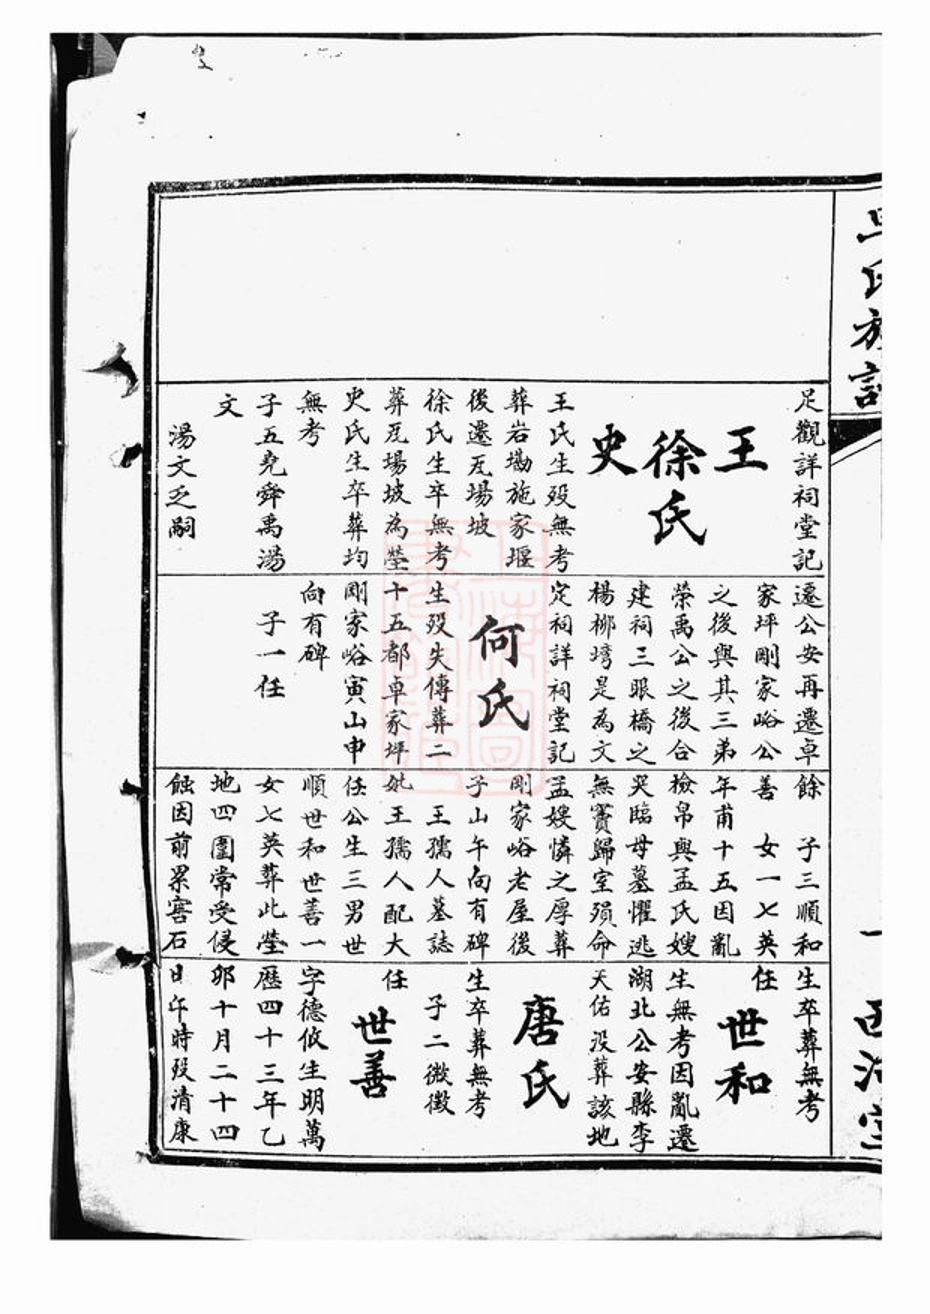 氏族
西
足觀詳祠堂記
王
徐氏
史
王氏生殁無考
葬岩坳施家堰
後遷瓦場坡
徐氏生卒無考
葬瓦場坡為塋
史氏生卒葬均
無考
子五堯舜禹湯
文
湯文乏嗣
遷公安再遷卓
家坪剛家峪公
之後與其三弟
榮禹公之後合
建祠三眼橋之
楊柳塆是為文
定祠詳祠堂記
何氏
生殁失傳葬二
十五都卓家坪
剛家峪寅山申
向有碑
子一任
餘 子三順和
善 女一七英
年甫十五因亂
檢帛與孟氏嫂
哭臨母墓懼逃
無賓歸室殞命
孟嫂憐之厚葬
剛家峪老屋後
子山午向有碑
王孺人墓誌
妣王孺人配大
任公生三男世
順世和世善一
女七英葬此塋
地四圍常受侵
蝕因前累窖石
生卒葬無考
任
世和
生無考因亂遷
湖北公安縣李
天佑没葬該地
唐氏
生卒葬無考
子二微徵
任
世善
字德攸生明萬
歷四十三年乙
卯十月二十四
日午時殁清康